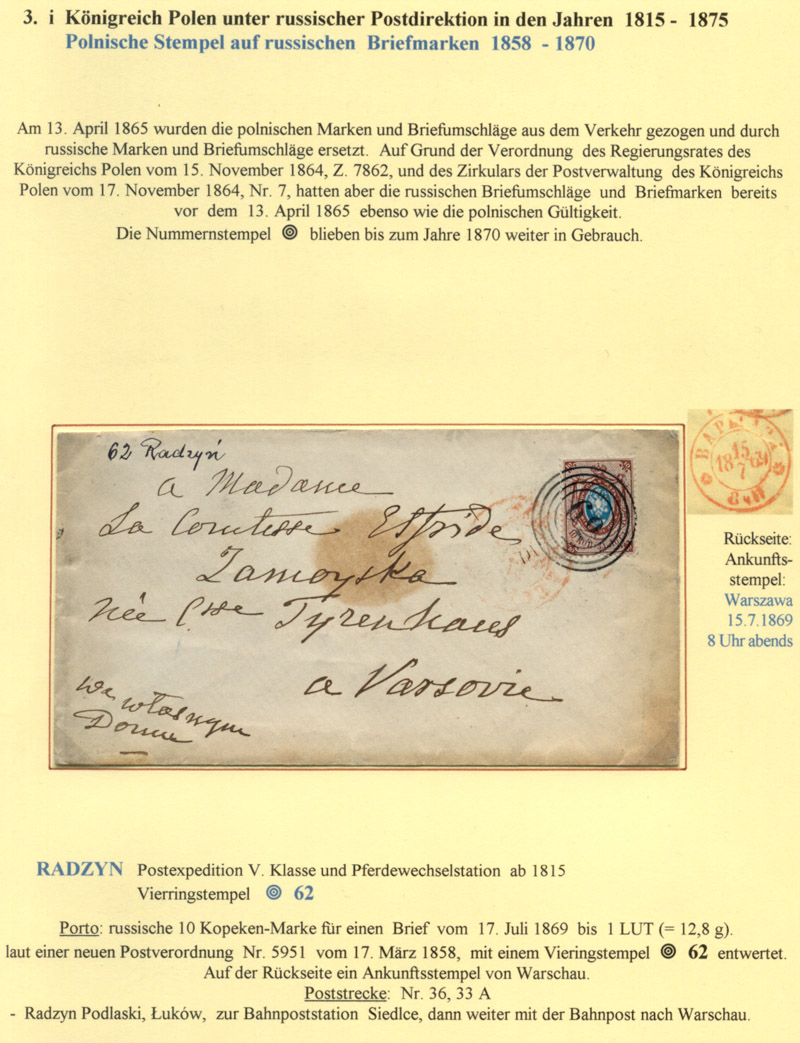 3. i Königreich Polen unter russischer Postdirektion in den Jahren 1815 - 1875
Polnische Stempel auf russischen Briefmarken 1858 - 1870
Am 13. April 1865 wurden die polnischen Marken und Briefumschläge aus dem Verkehr gezogen und durch
russische Marken und Briefumschläge ersetzt. Auf Grund der Verordnung des Regierungsrates des
Königreichs Polen vom 15. November 1864, Z. 7862, und des Zirkulars der Postverwaltung des Königreichs
Polen vom 17. November 1864, Nr. 7, hatten aber die russischen Briefumschläge und Briefmarken bereits
vor dem 13. April 1865 ebenso wie die polnischen Gültigkeit.
Die Nummernstempel blieben bis zum Jahre 1870 weiter in Gebrauch.
62 Radzyń
a Madame
La Comtesse Elfride
Zamoyska
née Csse Tyzenhaus
a Varsovie
we własnym
Domu
15
1869
7
Rückseite:
Ankunfts-
stempel:
Warszawa
15.7.1869
8 Uhr abends
RADZYN Postexpedition V. Klasse und Pferdewechselstation ab 1815
Vierringstempel 62
Porto: russische 10 Kopeken-Marke für einen Brief vom 17. Juli 1869 bis 1 LUT (= 12,8 g).
laut einer neuen Postverordnung Nr. 5951 vom 17. März 1858, mit einem Vieringstempel 62 entwertet.
Auf der Rückseite ein Ankunftsstempel von Warschau.
Poststrecke: Nr. 36, 33 A
- Radzyn Podlaski, Łuków, zur Bahnpoststation Siedlce, dann weiter mit der Bahnpost nach Warschau.